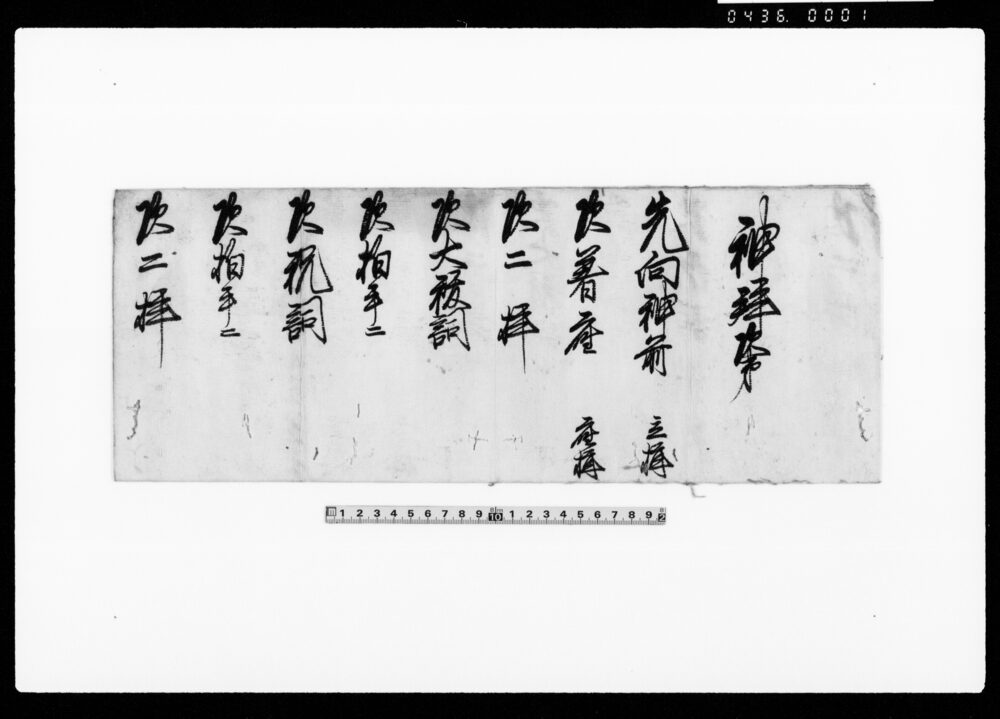 0436. 0001
神拝次第
先向神前 立拝
次着座 座拝
次二拝
次大祓詞
次拍手二
次祝詞
次拍手二
次二拝
1 2 3 4 5 6 7 8 9 10 1 2 3 4 5 6 7 8 9 2